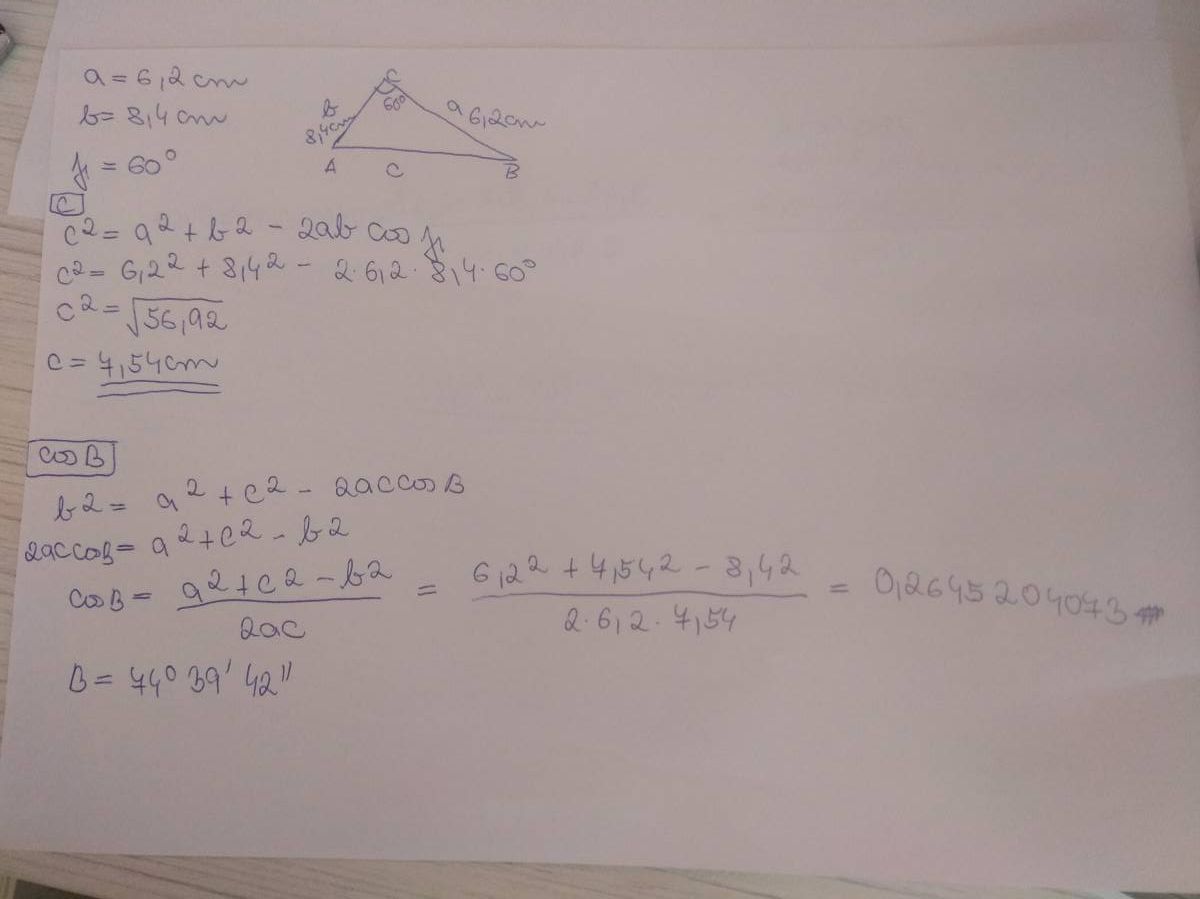 a = 6,2 cm
b = 8,4 cm
γ = 60°
C
60°
b
8,4cm
a 6,2cm
A
C
B
C
c² = a² + b² - 2ab cos γ
c² = 6,2² + 8,4² - 2·6,2·8,4·60°
c² = √56,92
c = 7,54cm
cos B
b² = a² + c² - 2ac cos B
2ac cos B = a² + c² - b²
cos B = a² + c² - b² / 2ac = 6,2² + 7,54² - 8,42 / 2·6,2·7,54 = 0,2645204073
B = 74° 39' 42''